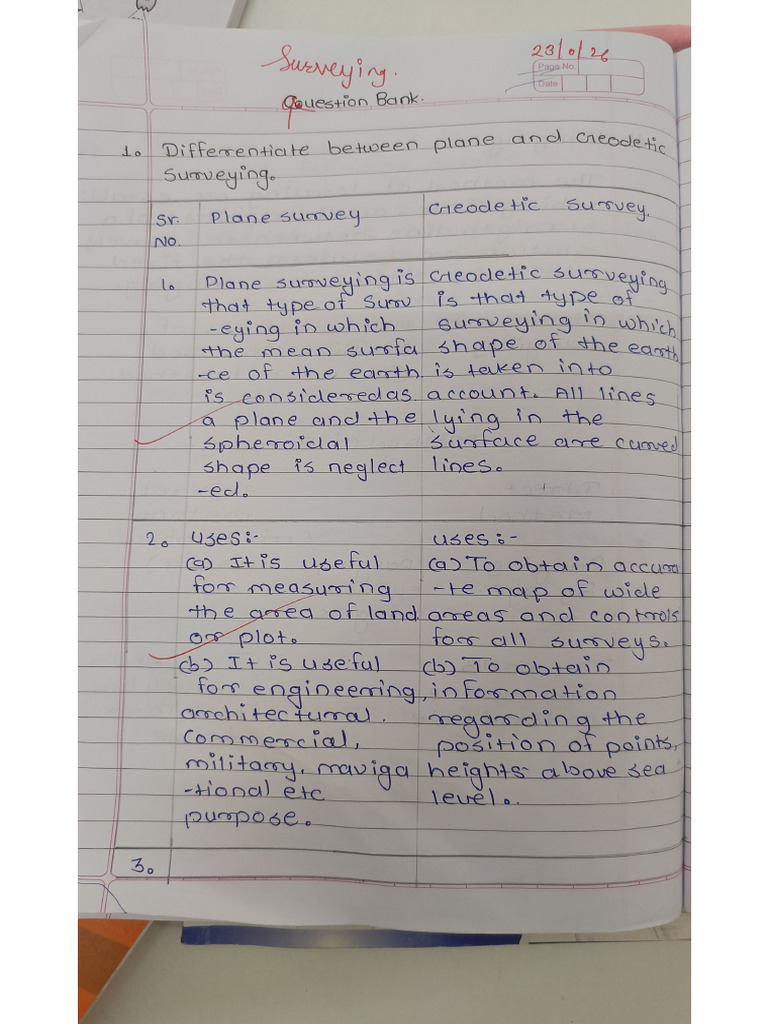 Surveying.
23/0/26
Page No.
Date
Question Bank.
1. Differentiate between plane and Geodetic
Surveying.
Sr. No.
Plane survey
Geodetic survey.
1.
Plane surveying is
that type of surv
-eying in which
the mean surfa
-ce of the earth
is considered as
a plane and the
spheroidal
shape is neglect
-ed.
Geodetic surveying
is that type of
surveying in which
shape of the earth
is taken into
account. All lines
lying in the
surface are curved
lines.
2.
uses:-
(a) It is useful
for measuring
the area of land
or plot.
(b) It is useful
for engineering,
architectural.
commercial,
military, naviga
-tional etc
purpose.
uses:-
(a) To obtain accura
-te map of wide
areas and controls
for all surveys.
(b) To obtain
information
regarding the
position of points,
heights above sea
level.
3.